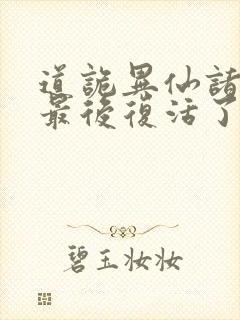 道詭異仙諸
最後復活了
碧玉妆妆